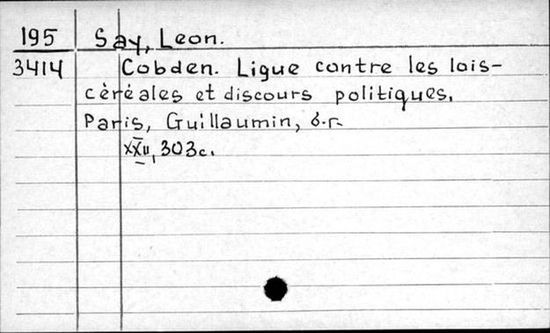 195 Say, Leon.
3414 Cobden. Ligue contre les lois-
céréales et discours politiques.
Paris, Guillaumin, б.г.
XXII, 303c.